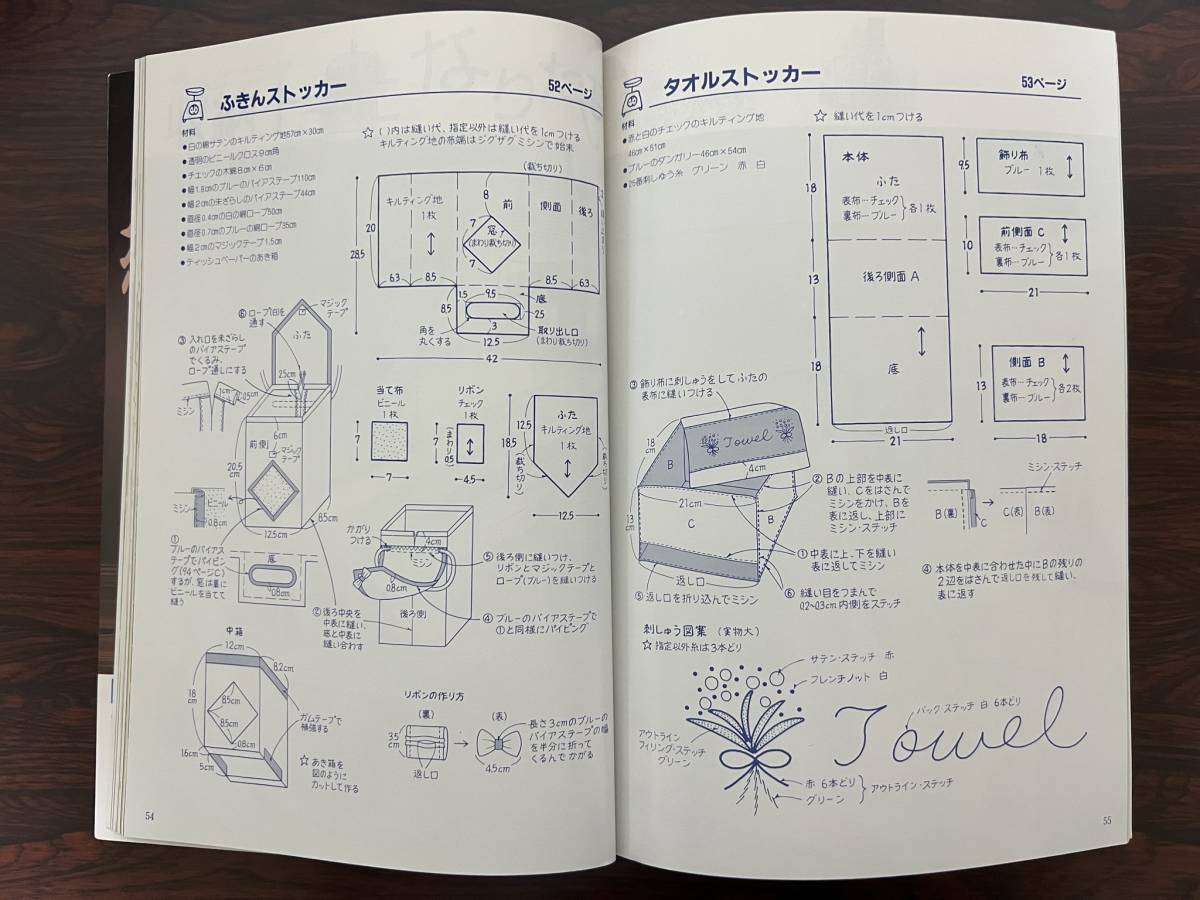 ふきんストッカー
52ページ
材料
●白の綿サテンのキルティング地57cm×30cm
●透明のビニールクロス9cm角
●チェックの木綿8cm×6cm
●幅1.8cmのブルーのバイアステープ110cm
●幅2cmの未ざらしのバイアステープ44cm
●直径0.4cmの白の綿ロープ50cm
●直径0.7cmのブルーの綿ロープ35cm
●幅2cmのマジックテープ1.5cm
●ティッシュペーパーのあき箱
☆( )内は縫い代、指定以外は縫い代を1cmつける
キルティング地の布端はジグザグミシンで始末
(裁ち切り)
キルティング地
1枚
前
側面
後ろ
8
7
窓
(まわり裁ち切り)
7
20
28.5
6.3
8.5
8.5
6.3
1.5
9.5
底
8.5
2.5
3
角を
丸くする
取り出し口
(まわり裁ち切り)
12.5
42
⑥ロープ(白)を
通す
マジック
テープ
ふた
③入れ口を未ざらし
のバイアステープ
でくるみ、
ロープ通しにする
25cm
1cm
0.5cm
ミシン
6cm
前側
マジック
テープ
20.5
cm
ビニール
ミシン
0.8cm
12.5cm
8.5cm
①
ブルーのバイアス
テープでパイピン
グ(94ページC)
するが、窓は裏に
ビニールを当てて
縫う
底
0.8cm
②後ろ中央を
中表に縫い、
底と中表に
縫い合わす
当て布
ビニール
1枚
7
7
リボン
チェック
1枚
7
(まわり0.5)
4.5
12.5
18.5
(裁ち切り)
ふた
キルティング地
1枚
(裁ち切り)
12.5
かがり
つける
4cm
ミシン
0.8cm
後ろ側
⑤後ろ側に縫いつけ、
リボンとマジックテープと
ロープ(ブルー)を縫いつける
④ブルーのバイアステープで
①と同様にパイピング
中箱
12cm
8.2cm
18
cm
8.5cm
8.5cm
0.8cm
1.6cm
5cm
ガムテープで
補強する
☆あき箱を
図のように
カットして作る
リボンの作り方
(裏)
3.5
cm
返し口
(表)
4.5cm
長さ3cmのブルーの
バイアステープの幅
を半分に折って
くるんでかがる
54
タオルストッカー
53ページ
材料
●赤と白のチェックのキルティング地
46cm×51cm
●ブルーのダンガリー46cm×54cm
●25番刺しゅう糸 グリーン 赤 白
☆縫い代を1cmつける
本体
ふた
表布…チェック
裏布…ブルー
各1枚
18
後ろ側面A
13
底
18
返し口
21
飾り布
ブルー 1枚
9.5
前側面C
表布…チェック
裏布…ブルー
各1枚
10
21
側面B
表布…チェック
裏布…ブルー
各2枚
13
18
③飾り布に刺しゅうをして ふたの
表布に縫いつける
18
cm
B
Towel
4cm
21cm
C
B
13
cm
返し口
⑤返し口を折り込んでミシン
②Bの上部を中表に
縫い、Cをはさんで
ミシンをかけ、Bを
表に返し、上部に
ミシン・ステッチ
①中表に上、下を縫い
表に返してミシン
⑥縫い目をつまんで
0.2~0.3cm内側をステッチ
ミシン・ステッチ
B(裏)
C
C(表)
B(表)
④本体を中表に合わせた中にBの残りの
2辺をはさんで返し口を残して縫い、
表に返す
刺しゅう図案 (実物大)
☆指定以外糸は3本どり
サテン・ステッチ 赤
フレンチノット 白
アウトライン
フィリング・ステッチ
グリーン
赤 6本どり
グリーン
アウトライン・ステッチ
バック・ステッチ 白 6本どり
Towel
55